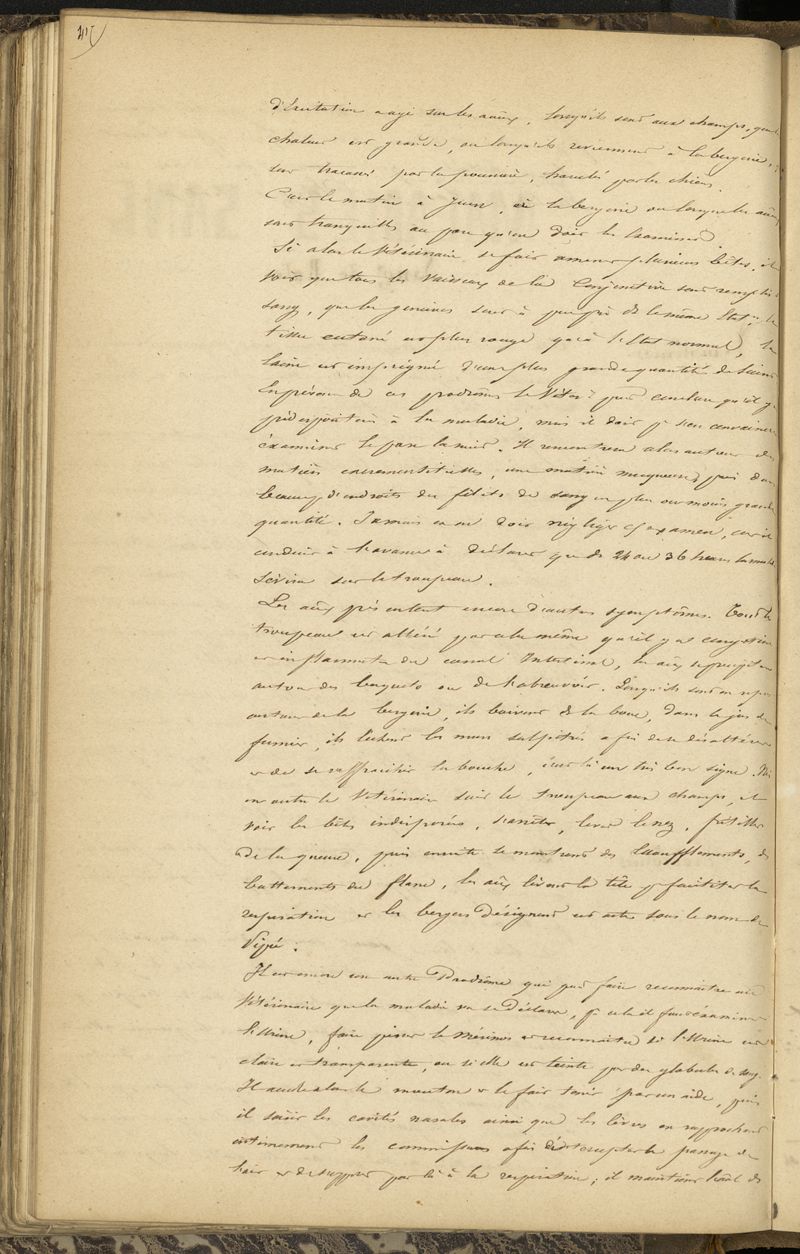 d'Excitation a agi sur les aaux, lorsqu'ils sont aux champs, que la
chaleur est grande, ou lorsqu'ils reviennent à la bergerie,
sur tracassé par la poussière, harcelés par les chiens.
C'est le matin à Jeun, à la bergerie ou lorsque les aaux
sont tranquilles au parc qu'on doit les Examiner.
Si alors le Vétérinaire se fait amener plusieurs bêtes, il
voit que tous les Vaisseaux de la Conjonctive sont remplis de
sang, que les gencives sont à peu près de la même État, le
tissu cutané est plus rouge qu'à l'État normal, la
laine est imprégnée d'une plus grande quantité de Suint
En présence de ces prodrômes le Vétér. peut conclure qu'il y a
prédisposition à la maladie, mais il doit pr s'en convaincre
examiner le parc la nuit. Il rencontrera alors autour des
matières excrémentitielles, une matière muqueuse, puis dans
beaucoup d'endroits des filets de sang en plus ou moins grande
quantité. Jamais on ne doit négliger cet examen, car il
conduit à l'avance à déclarer que de 24 ou 36 heures la maladie
Sévira sur le troupeau.
Les aaux présentent encore d'autres symptômes. Tout le
troupeau est altéré par cela même qu'il y a congestion
et inflammation du canal Intestinal, les aaux se précipitent
autour des baquets ou de l'abreuvoir. Lorsqu'ils sont en repos
autour de la bergerie, ils boivent de la boue, dans le jus de
fumier, ils lèchent les murs salpêtrés afin de se désaltérer
et de se raffraichir la bouche, c'est là un très bon signe. Si
en outre le Vétérinaire suit le troupeau aux champs, il
voit les bêtes indisposées, s'arrêter, lever le nez, frétiller
de la queue, puis ensuite se montrent des Essoufflements, des
battements du flanc, les aaux lèvent la tête pr faciliter la
respiration et les bergers désignent cet acte sous le nom de

Il est encore un autre Prodrôme qui peut faire reconnaître au
Vétérinaire que la maladie va se Déclarer, pr cela il faut examiner
l'Urine, faire pisser le Mérinos et reconnaître si l'Urine est
claire et transparente, ou si elle est teinte par des globules de sang.
Il accule alors le mouton et le fait tenir par un aide, puis
il saisit les cavités nasales ainsi que les lèvres en rapprochant
intimement les commissures afin d'intercepter le passage de
l'air et de s'opposer par là à la respiration; il maintient l'aal de